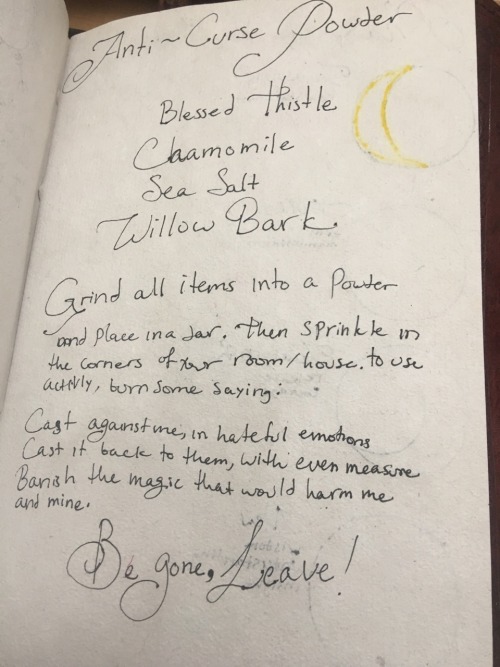 Anti~Curse Powder
Blessed Thistle
Chaamomile
Sea Salt
Willow Bark.
Grind all items into a Powder
and Place in a Jar. Then Sprinkle in
the corners of your room/house. to use
activly, burn some saying:
Cast against me, in hateful emotions
Cast it back to them, with even measure
Banish the magic that would harm me
and mine.
Be gone, Leave!